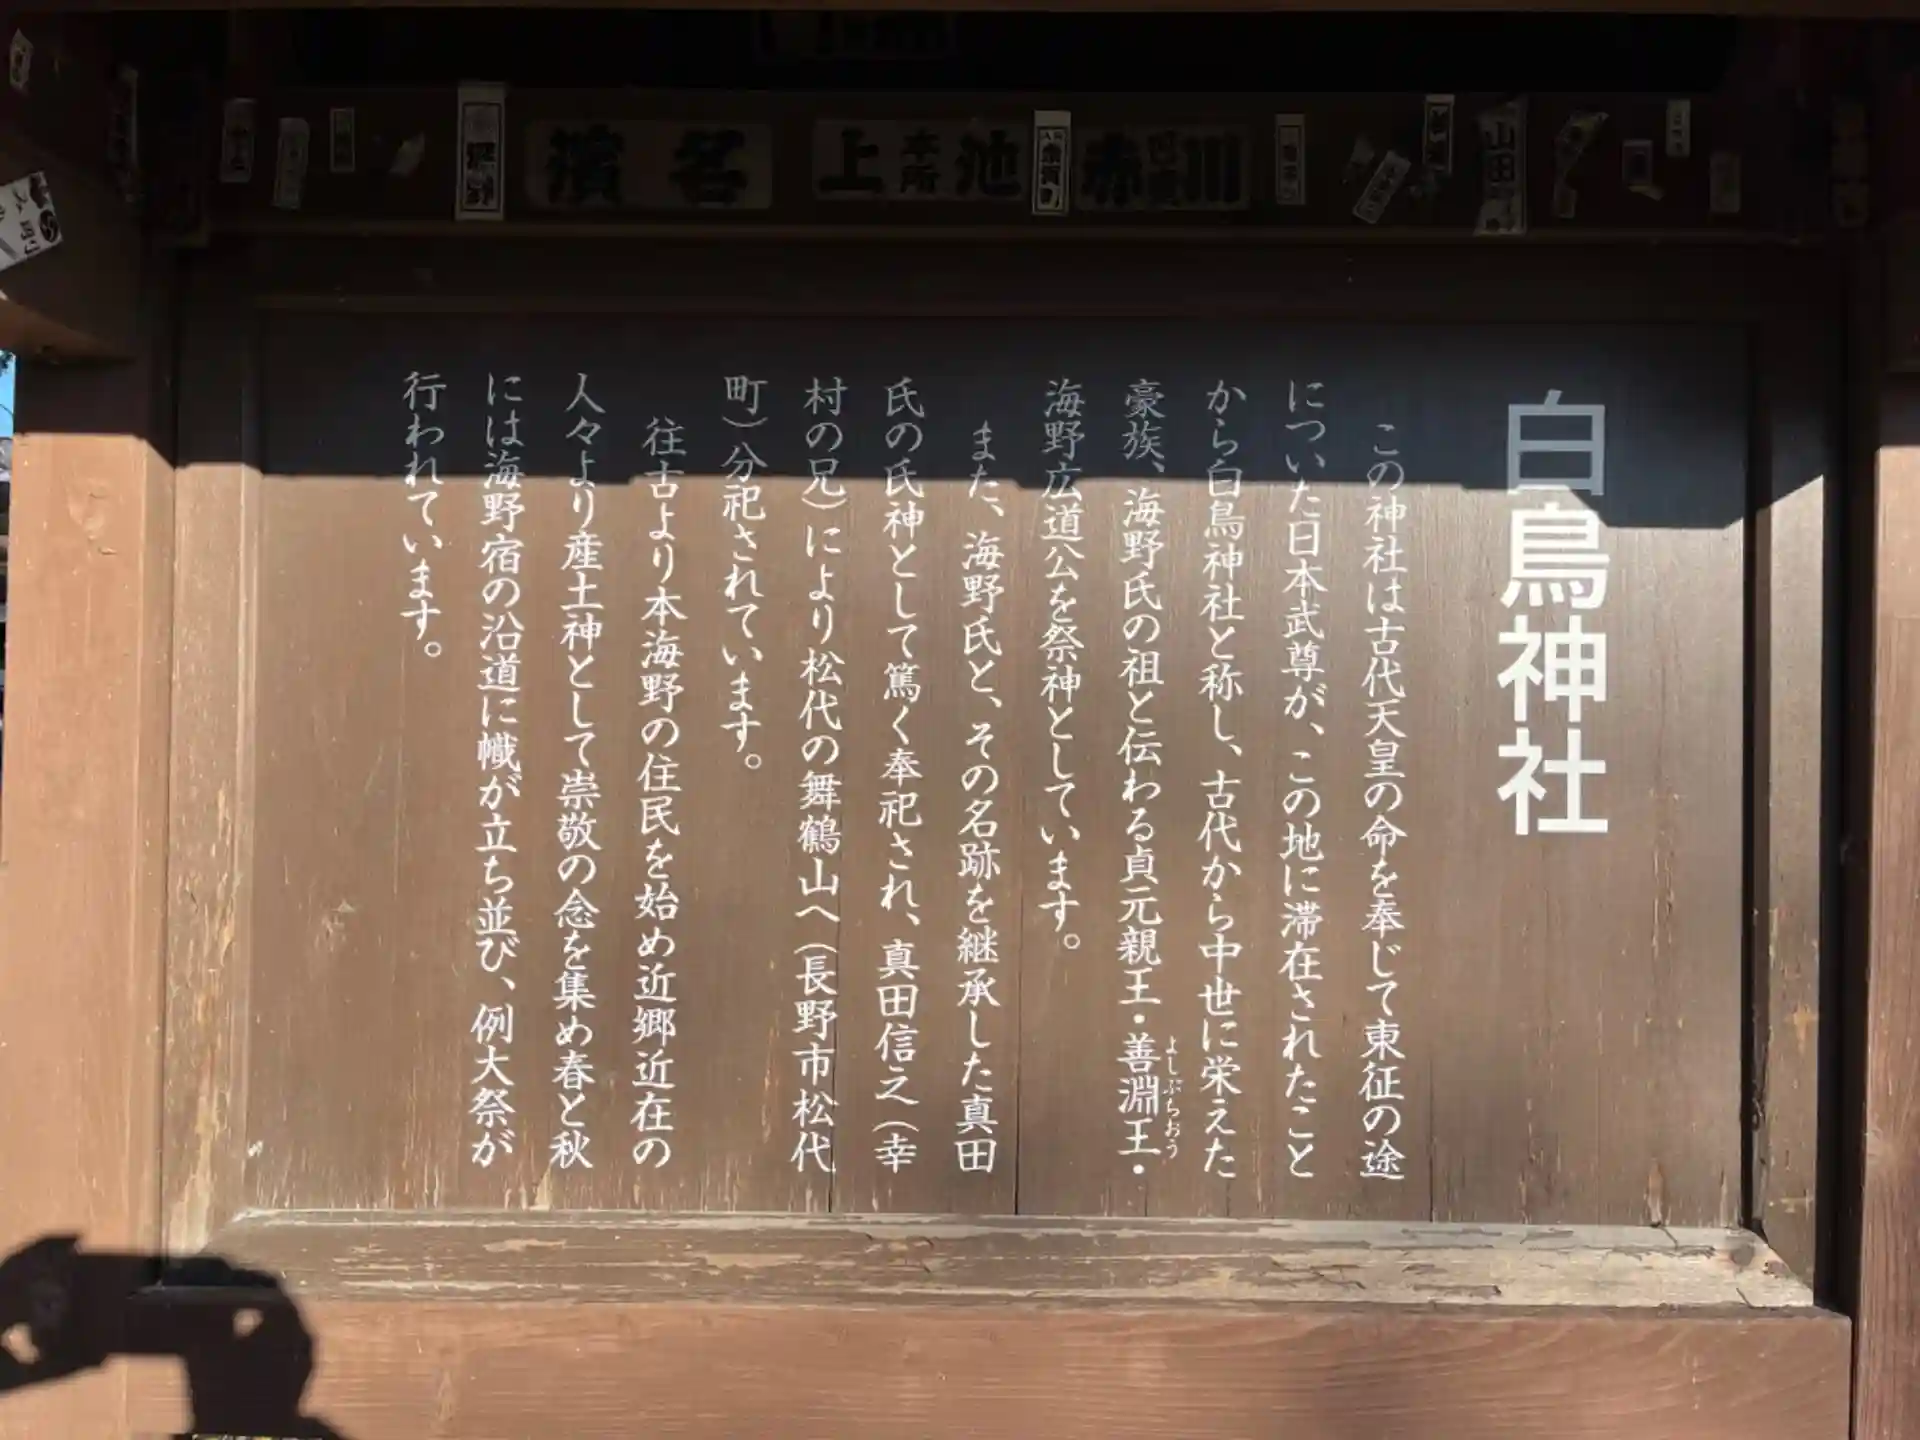 濱名
上本所池
赤川
山田
白鳥神社
この神社は古代天皇の命を奉じて東征の途
についた日本武尊が、この地に滞在されたこと
から白鳥神社と称し、古代から中世に栄えた
豪族、海野氏の祖と伝わる貞元親王・善淵王・
よしぶちおう
海野広道公を祭神としています。
また、海野氏と、その名跡を継承した真田
氏の氏神として篤く奉祀され、真田信之（幸
村の兄）により松代の舞鶴山へ（長野市松代
町）分祀されています。
往古より本海野の住民を始め近郷近在の
人々より産土神として崇敬の念を集め春と秋
には海野宿の沿道に幟が立ち並び、例大祭が
行われています。